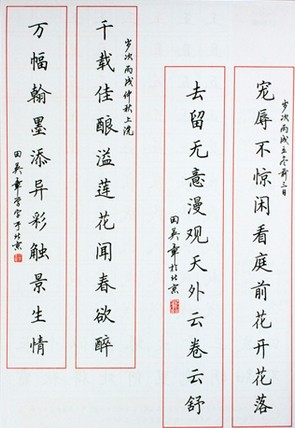 岁次丙戌立冬前三日
宠辱不惊闲看庭前花开花落
去留无意漫观天外云卷云舒
田英章于北京
岁次丙戌仲秋上浣
千载佳酿溢莲花闻春欲醉
万幅翰墨添异彩触景生情
田英章学字于北京